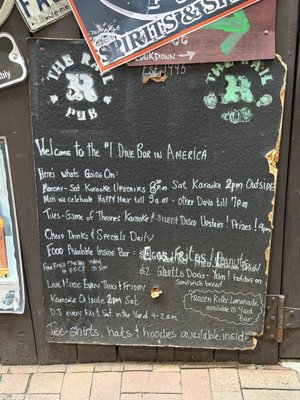 SPIRITS & S
LOCKDOWN
EST. 1993
THE RAIL
R
PUB
THE RAIL
R
PUB
Welcome to the #1 Dive Bar in America
Heres whats Going On:
Monday-Sat Karaoke Upstairs 8pm Sat Karaoke 2pm Outside
Mon we celebrate Happy Hour till 3a.m - Other Days till 7pm
Tues- Game of Thrones Karaoke & Silent Disco Upstairs! Prizes! 9pm
Cheap Drinks & Specials Daily
Food Available Inside Bar :
$2 Ghetto Dogs- Yum!
Sandwich bread
Live Music Every Thurs & Friday
Karaoke Outside 2pm Sat
Frozen Killer Lemonade
available in Yard
Bar
DJ's every Fri & Sat in the Yard
Tee-shirts, hats & hoodies available inside